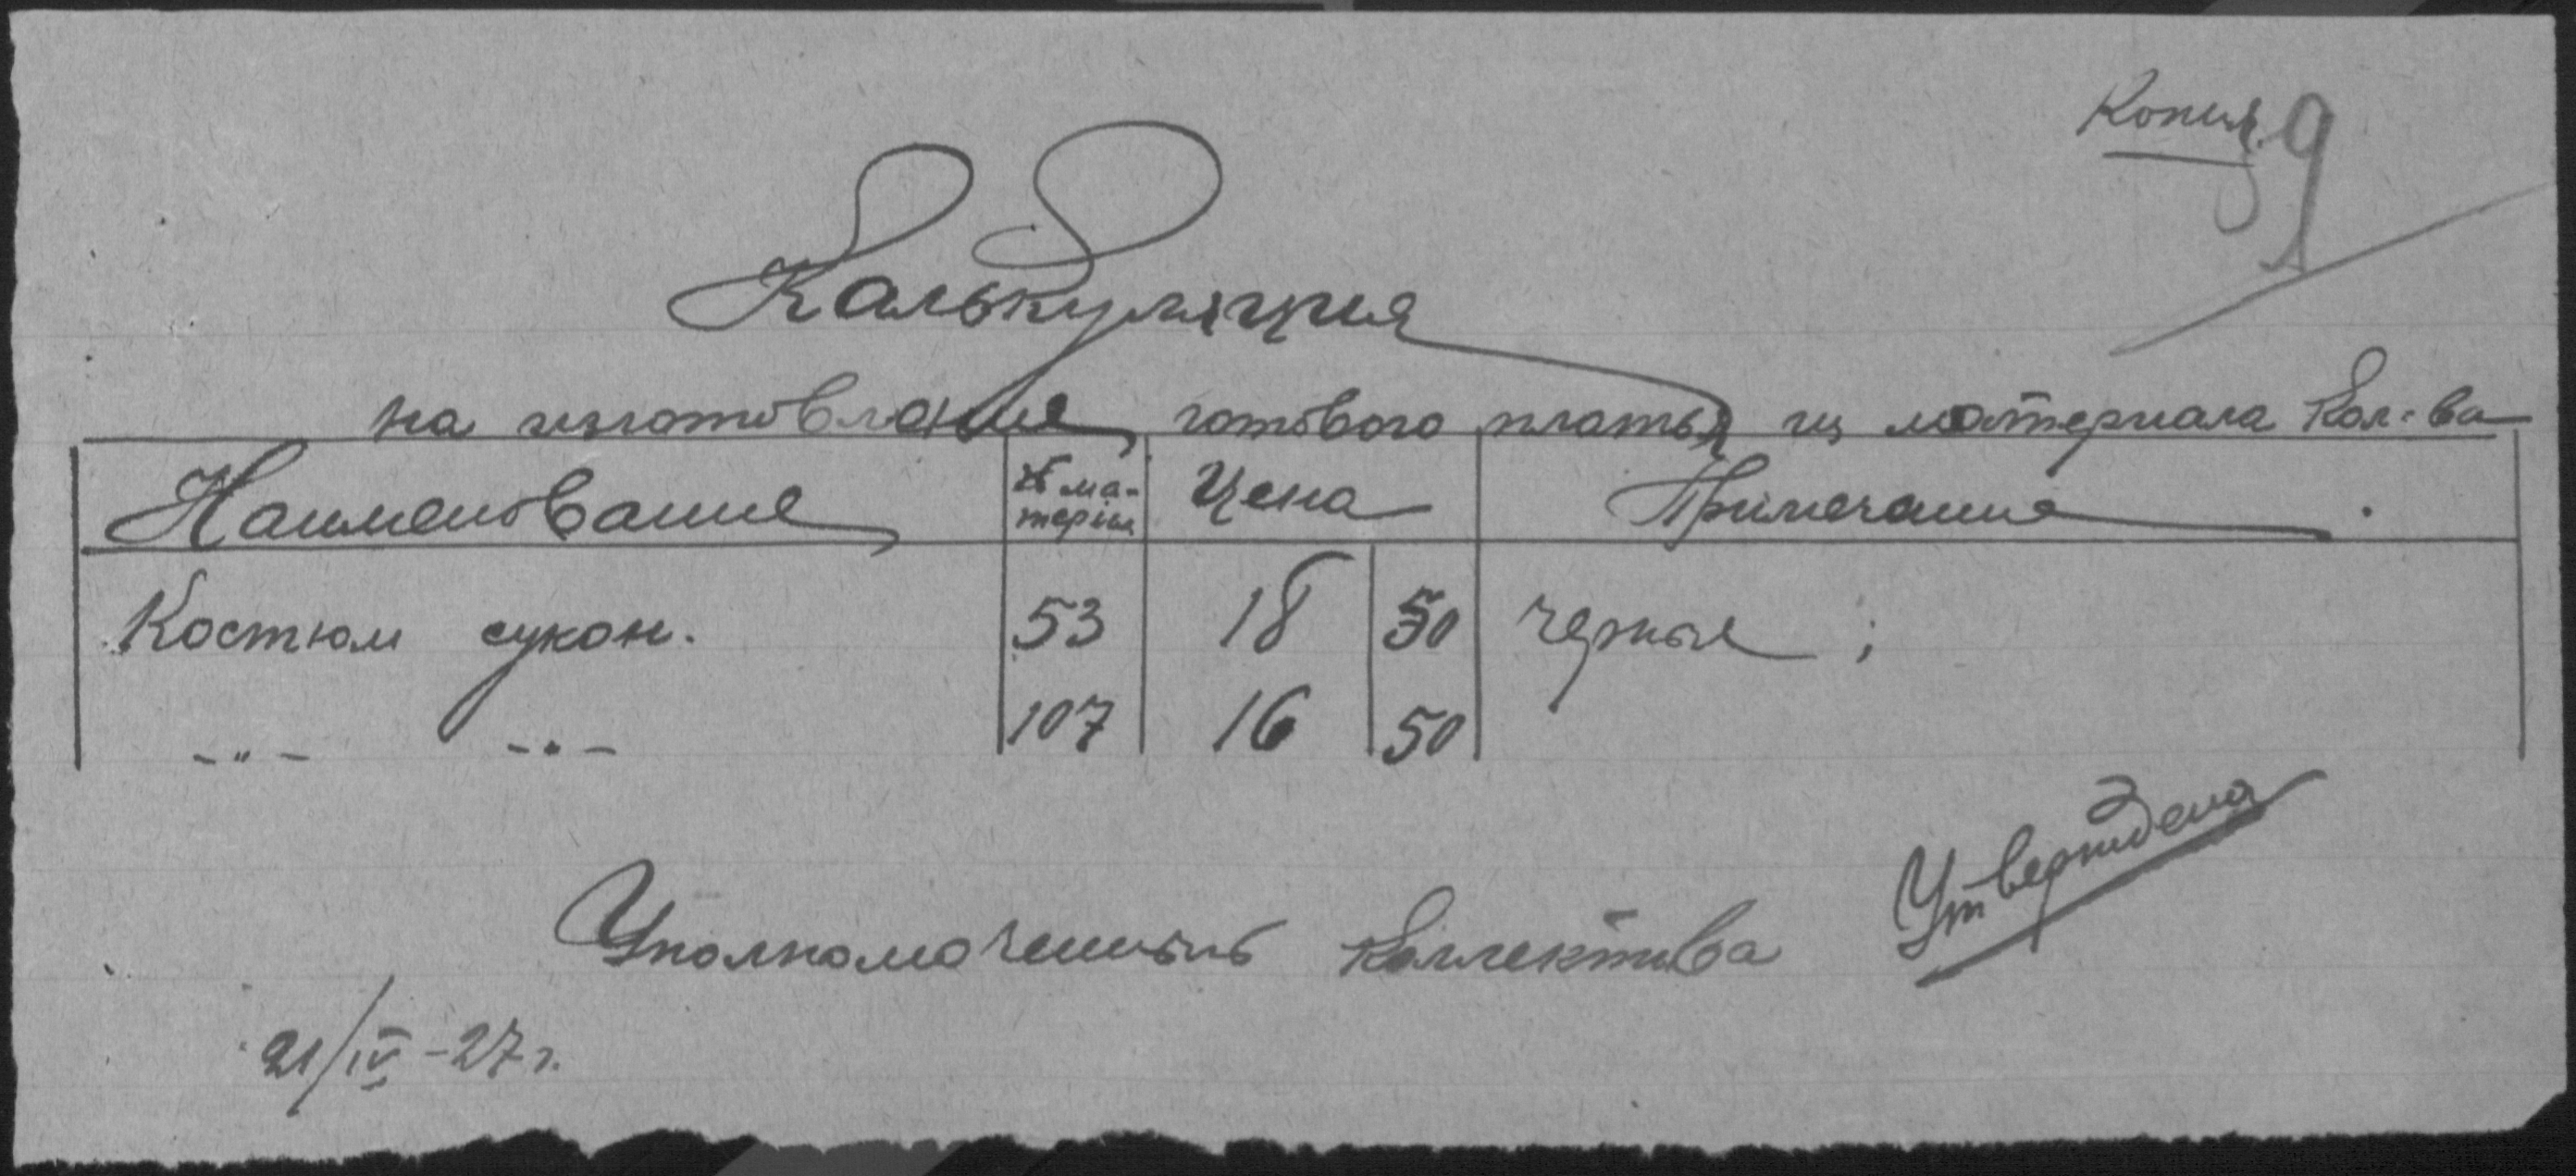 Копия. 9
Калькуляция
на изготовление готового платья из материала Кол-ва
Наименование № ма-терии Цена Примечание.
Костюм сукон. 53 18 50 черные ;
-"- -"- 107 16 50
Утверждена
Уполномоченный Коллектива
21/IV-27 г.